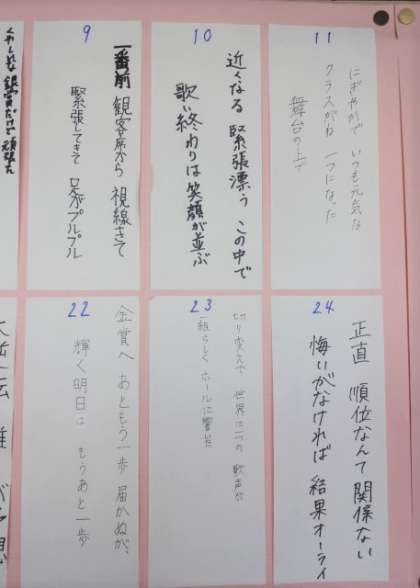 くやしいな 銀賞だけど 頑張った
9
一番前 観客席から 視線きて
緊張してきて 足がプルプル
10
近くなる 緊張漂う この中で
歌い終わりは 笑顔が並ぶ
11
にぎやかで いつも元気な
クラスがね 一つになった
舞台の上で
22
金賞へ あともう一歩 届かぬが、
輝く明日は もうあと一歩
23
切り変えて 世界に一つの 歌声が
一組らしく ホールに響いた
24
正直 順位なんて 関係ない
悔いがなければ 結果オーライ